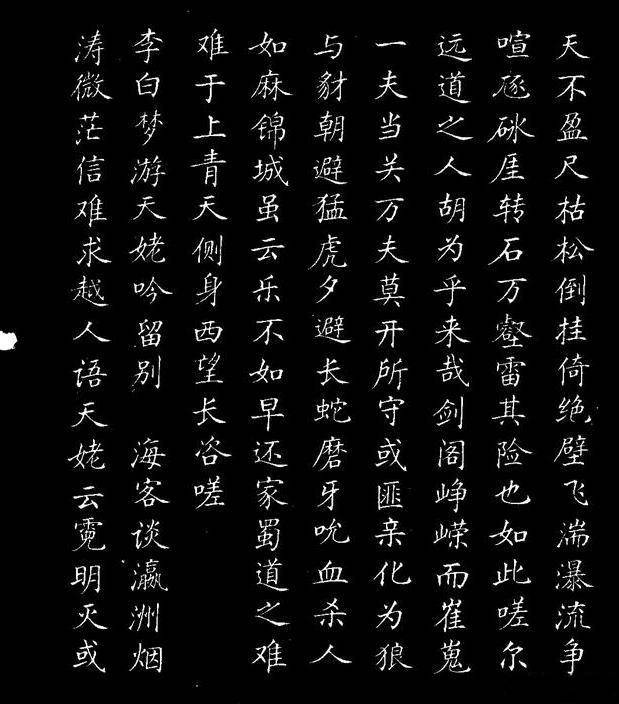 天不盈尺枯松倒挂倚绝壁飞湍瀑流争
喧豗砯崖转石万壑雷其险也如此嗟尔
远道之人胡为乎来哉剑阁峥嵘而崔嵬
一夫当关万夫莫开所守或匪亲化为狼
与豺朝避猛虎夕避长蛇磨牙吮血杀人
如麻锦城虽云乐不如早还家蜀道之难
难于上青天侧身西望长咨嗟
李白梦游天姥吟留别　海客谈瀛洲烟
涛微茫信难求越人语天姥云霓明灭或